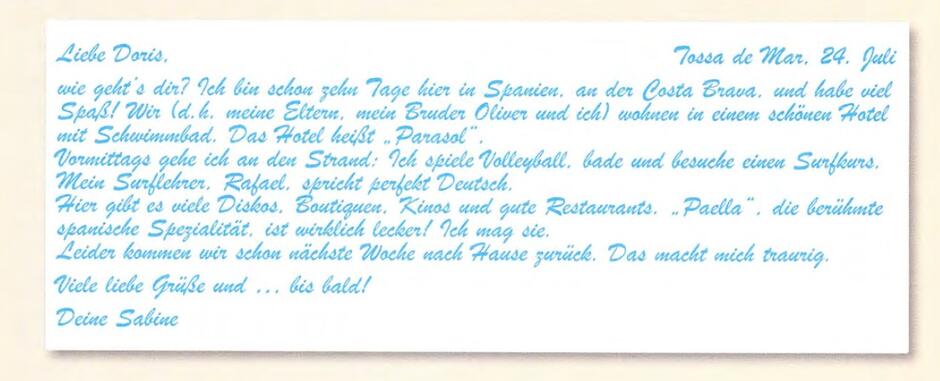 Liebe Doris, Tossa de Mar, 24. Juli
wie geht's dir? Ich bin schon zehn Tage hier in Spanien, an der Costa Brava, und habe viel
Spaß! Wir (d.h. meine Eltern, mein Bruder Oliver und ich) wohnen in einem schönen Hotel
mit Schwimmbad. Das Hotel heißt „Parasol".
Vormittags gehe ich an den Strand: Ich spiele Volleyball, bade und besuche einen Surfkurs.
Mein Surflehrer, Rafael, spricht perfekt Deutsch.
Hier gibt es viele Diskos, Boutiquen, Kinos und gute Restaurants. „Paella", die berühmte
spanische Spezialität, ist wirklich lecker! Ich mag sie.
Leider kommen wir schon nächste Woche nach Hause zurück. Das macht mich traurig.
Viele liebe Grüße und ... bis bald!
Deine Sabine